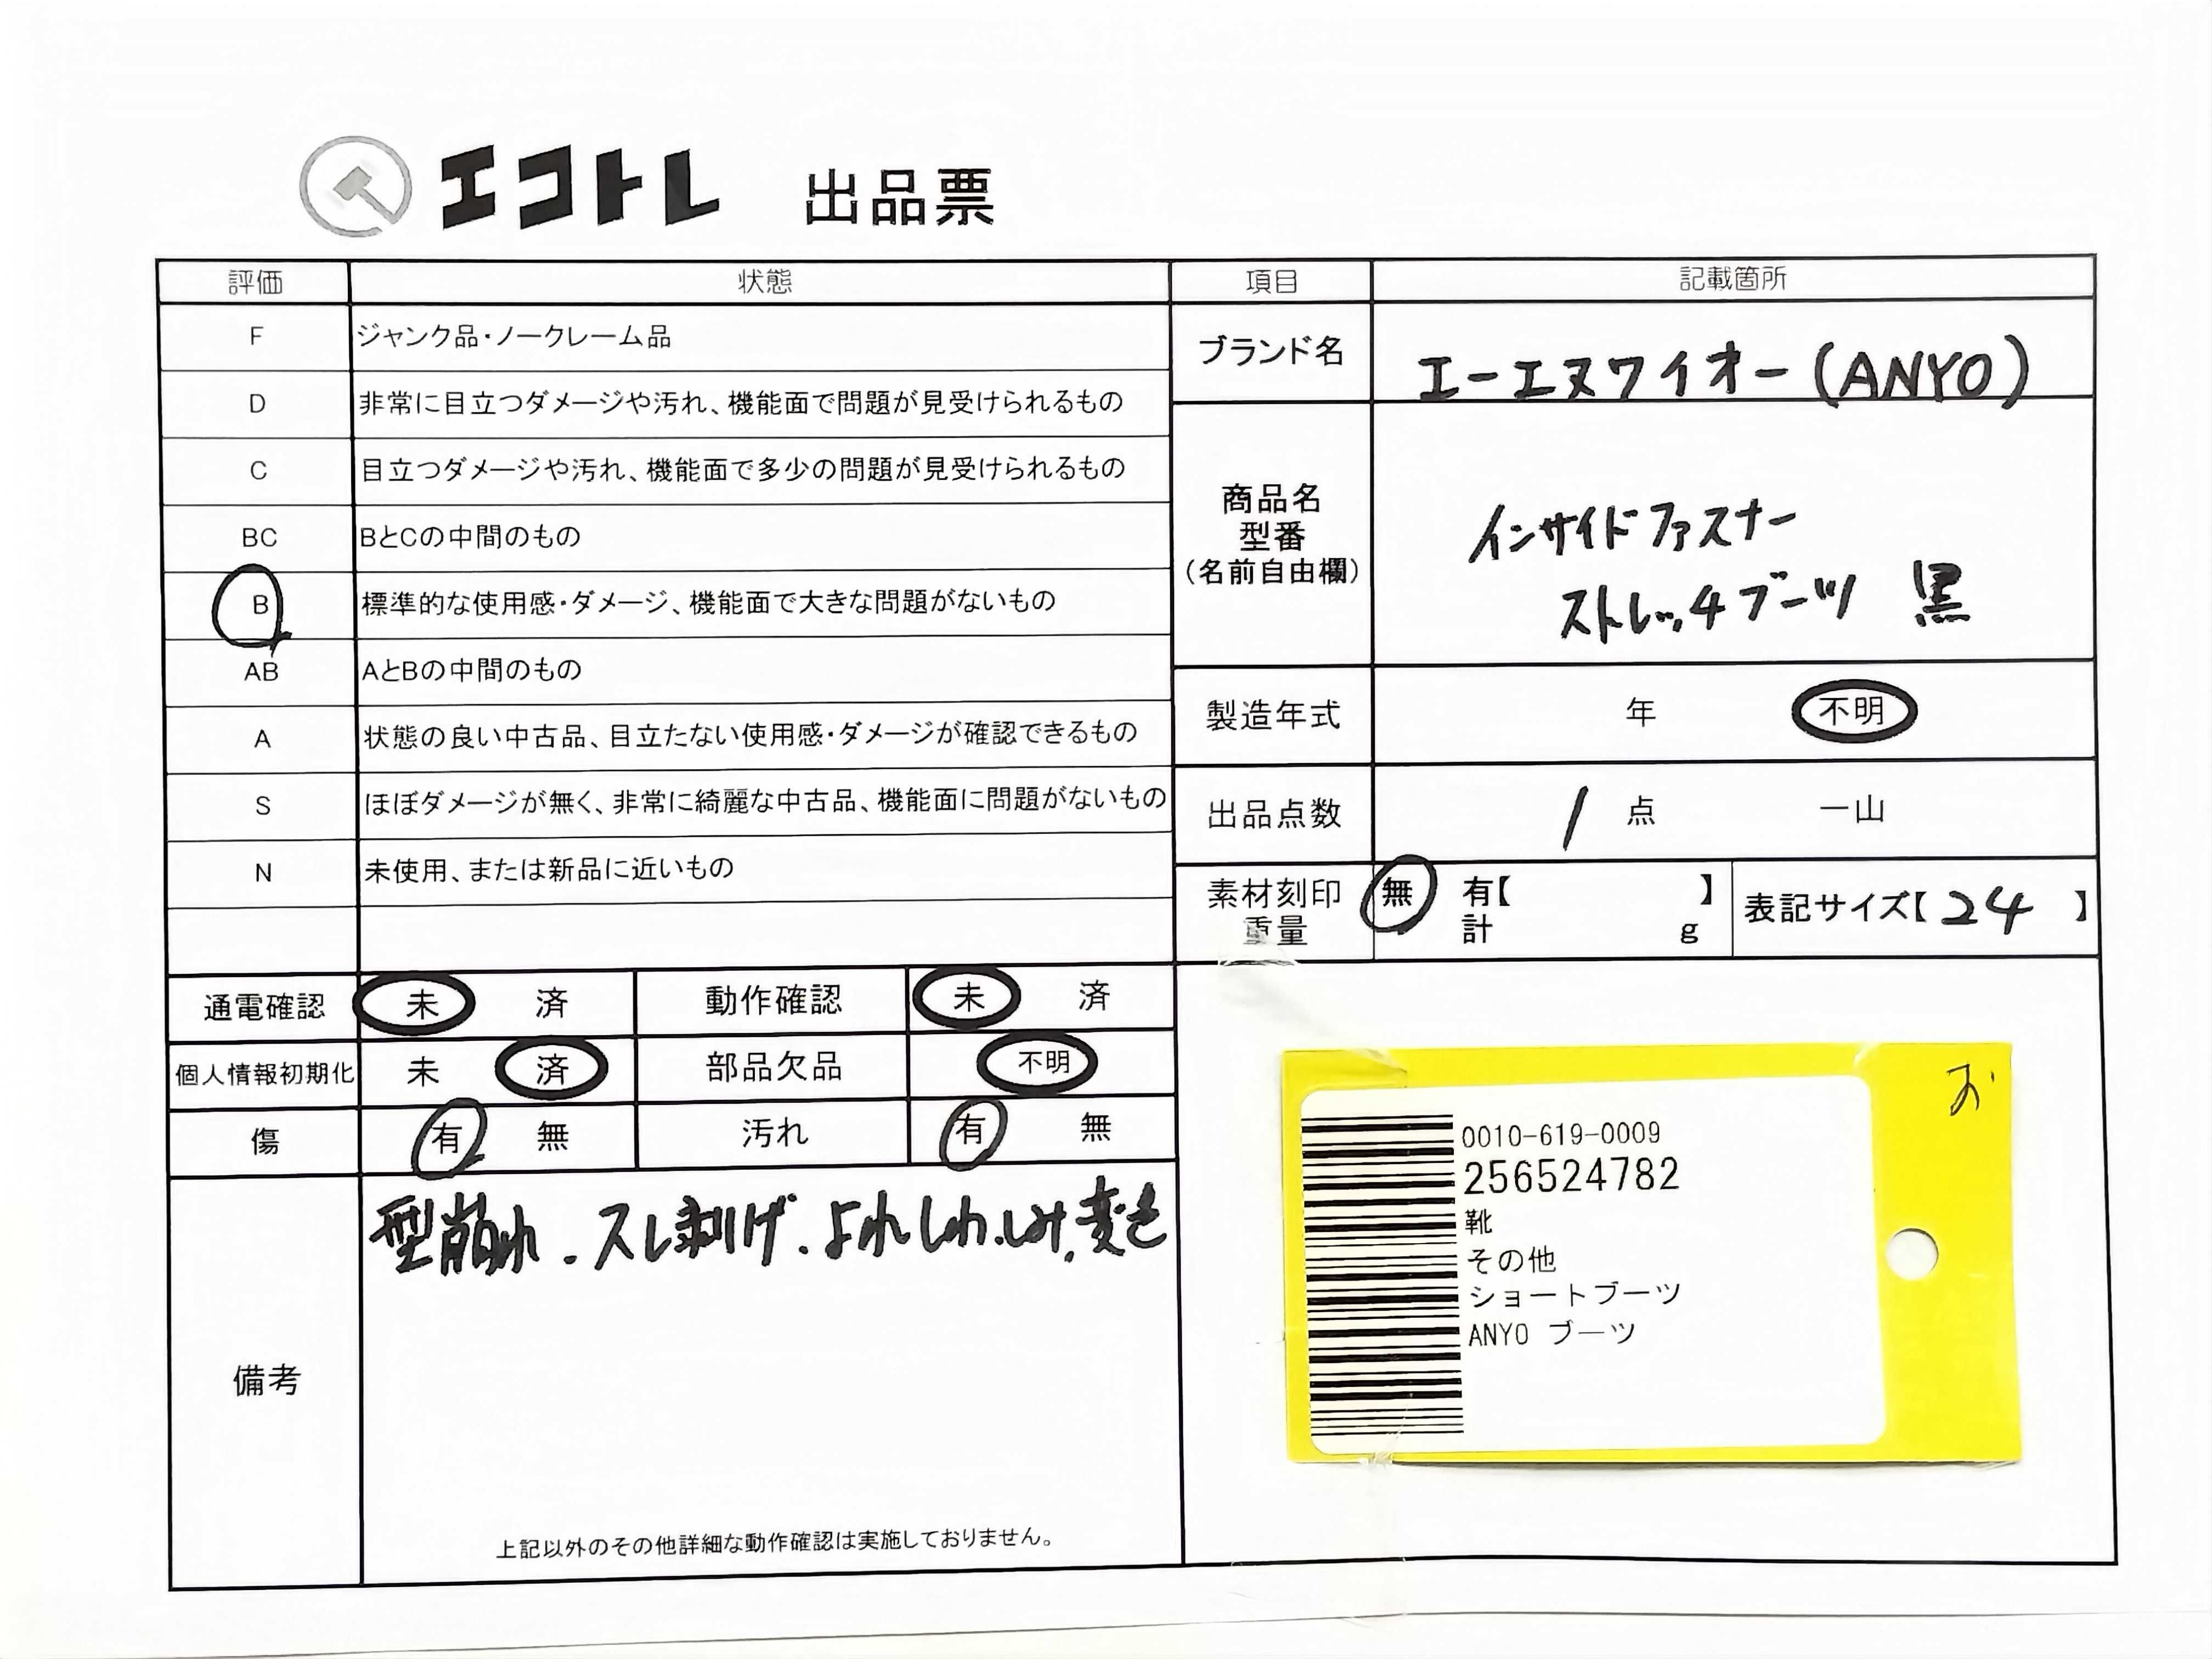 エコトレ 出品票
評価 状態
F ジャンク品・ノークレーム品
D 非常に目立つダメージや汚れ、機能面で問題が見受けられるもの
C 目立つダメージや汚れ、機能面で多少の問題が見受けられるもの
BC BとCの中間のもの
B 標準的な使用感・ダメージ、機能面で大きな問題がないもの
AB AとBの中間のもの
A 状態の良い中古品、目立たない使用感・ダメージが確認できるもの
S ほぼダメージが無く、非常に綺麗な中古品、機能面に問題がないもの
N 未使用、または新品に近いもの
項目 記載箇所
ブランド名 エーエヌワイオー(ANYO)
商品名
型番
(名前自由欄)
インサイドファスナー
ストレッチブーツ 黒
製造年式 年 不明
出品点数 1 点 一山
素材刻印 無 有【 】
重量 計 g
表記サイズ【24】
通電確認 未 済 動作確認 未 済
個人情報初期化 未 済 部品欠品 不明
傷 有 無 汚れ 有 無
備考
型崩れ.スレ剥げ.よれしわ.しみ.変色
上記以外のその他詳細な動作確認は実施しておりません。
お
0010-619-0009
256524782
靴
その他
ショートブーツ
ANYO ブーツ